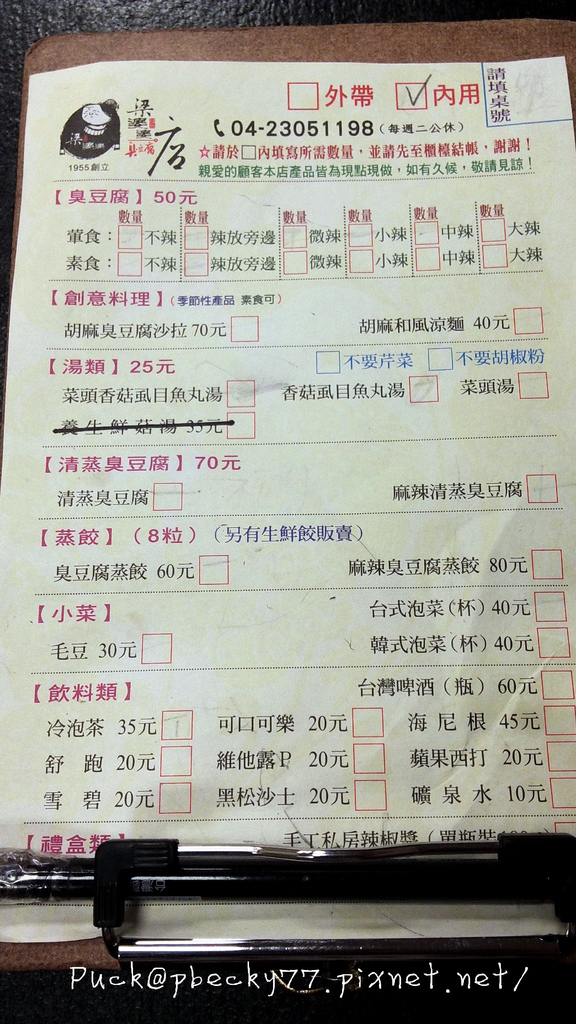 □外帶 ☑內用
請填桌號
梁
婆婆
臭豆腐
店
梁
1955創立
04-23051198(每週二公休)
☆請於□內填寫所需數量,並請先至櫃檯結帳,謝謝!
親愛的顧客本店產品皆為現點現做,如有久候,敬請見諒!
【臭豆腐】50元
數量 數量 數量 數量 數量 數量
葷食:□不辣 □辣放旁邊 □微辣 □小辣 □中辣 □大辣
素食:□不辣 □辣放旁邊 □微辣 □小辣 □中辣 □大辣
【創意料理】(季節性產品 素食可)
胡麻臭豆腐沙拉 70元□ 胡麻和風涼麵 40元□
【湯類】25元 □不要芹菜 □不要胡椒粉
菜頭香菇虱目魚丸湯□ 香菇虱目魚丸湯□ 菜頭湯□
養生鮮菇湯 35元□
【清蒸臭豆腐】70元
清蒸臭豆腐□ 麻辣清蒸臭豆腐□
【蒸餃】(8粒)(另有生鮮餃販賣)
臭豆腐蒸餃 60元□ 麻辣臭豆腐蒸餃 80元□
【小菜】 台式泡菜(杯)40元□
毛豆 30元□ 韓式泡菜(杯)40元□
【飲料類】 台灣啤酒(瓶)60元□
冷泡茶 35元□ 可口可樂 20元□ 海尼根 45元□
舒跑 20元□ 維他露P 20元□ 蘋果西打 20元□
雪碧 20元□ 黑松沙士 20元□ 礦泉水 10元□
【禮盒類】 手工私房辣椒醬(單瓶裝
Puck@pbecky77.pixnet.net/